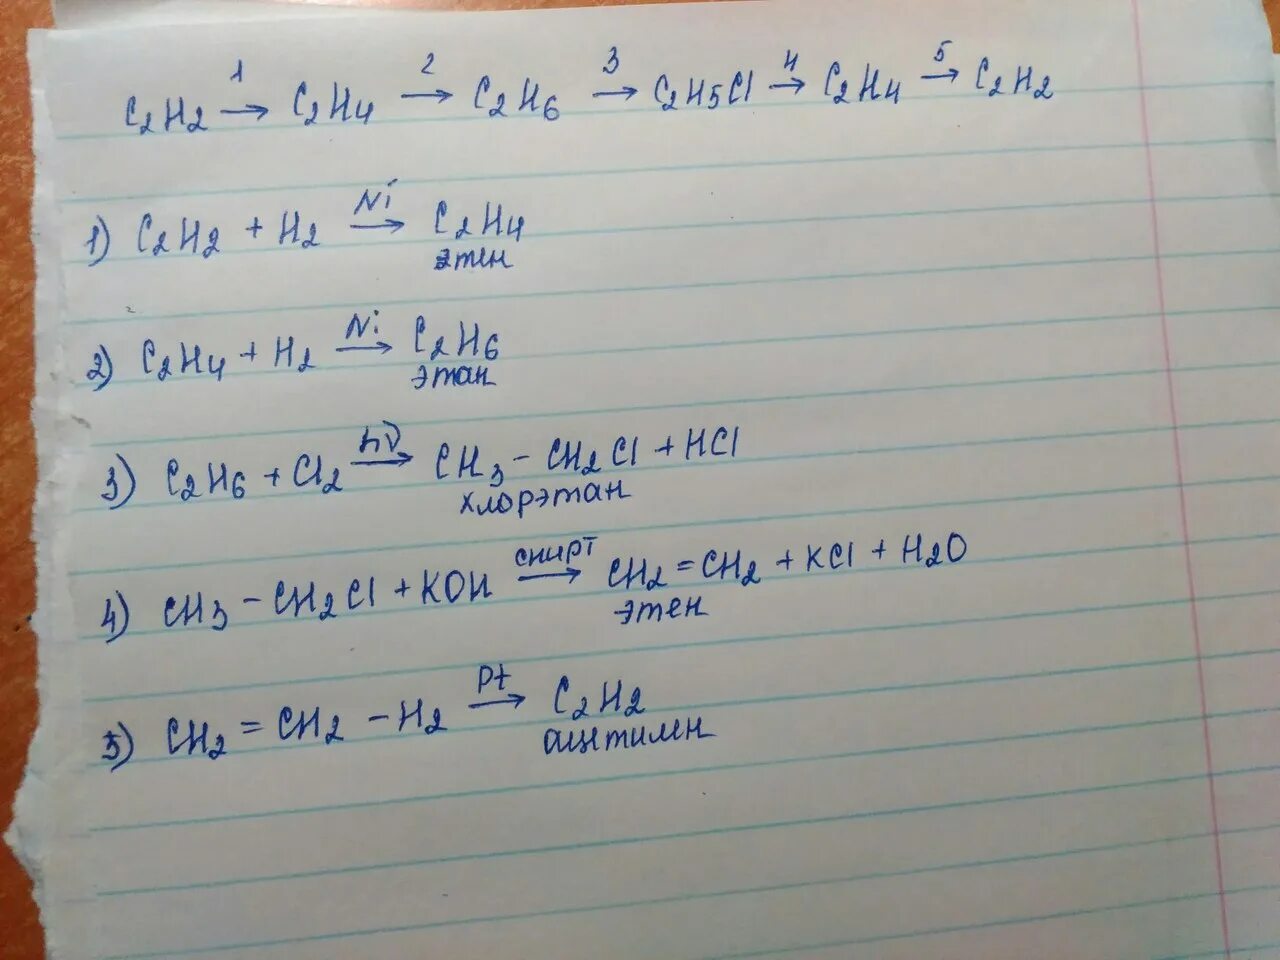 C2H2 →1 C2H4 →2 C2H6 →3 C2H5Cl →4 C2H4 →5 C2H2
1) C2H2 + H2 →Ni C2H4
этен
2) C2H4 + H2 →Ni C2H6
этан
3) C2H6 + Cl2 →hν CH3 – CH2Cl + HCl
хлорэтан
4) CH3 – CH2Cl + KOH →спирт CH2 = CH2 + KCl + H2O
этен
5) CH2 = CH2 – H2 →Pt C2H2
ацетилен